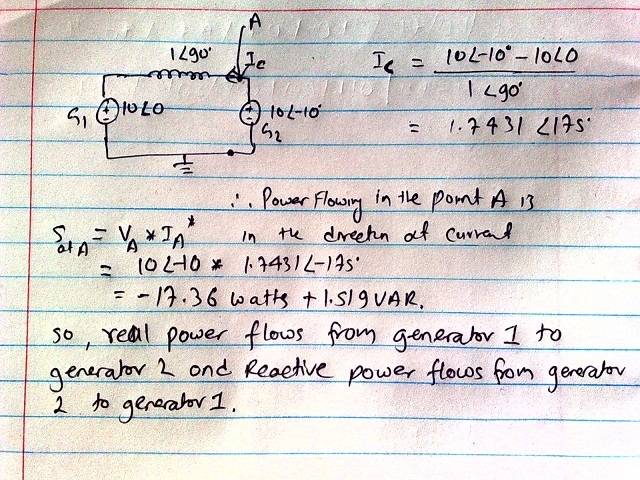 A
1∠90°
Ic
G1
10∠0
10∠-10°
G2
Ic = 10∠-10° - 10∠0
1∠90°
= 1.7431 ∠175°
∴ Power Flowing in the point A is
S at A = VA * IA* in the direction of current
= 10∠-10 * 1.7431∠-175°
= -17.36 watts + 1.519VAR.
so, real power flows from generator 1 to
generator 2 and Reactive power flows from generator
2 to generator 1.